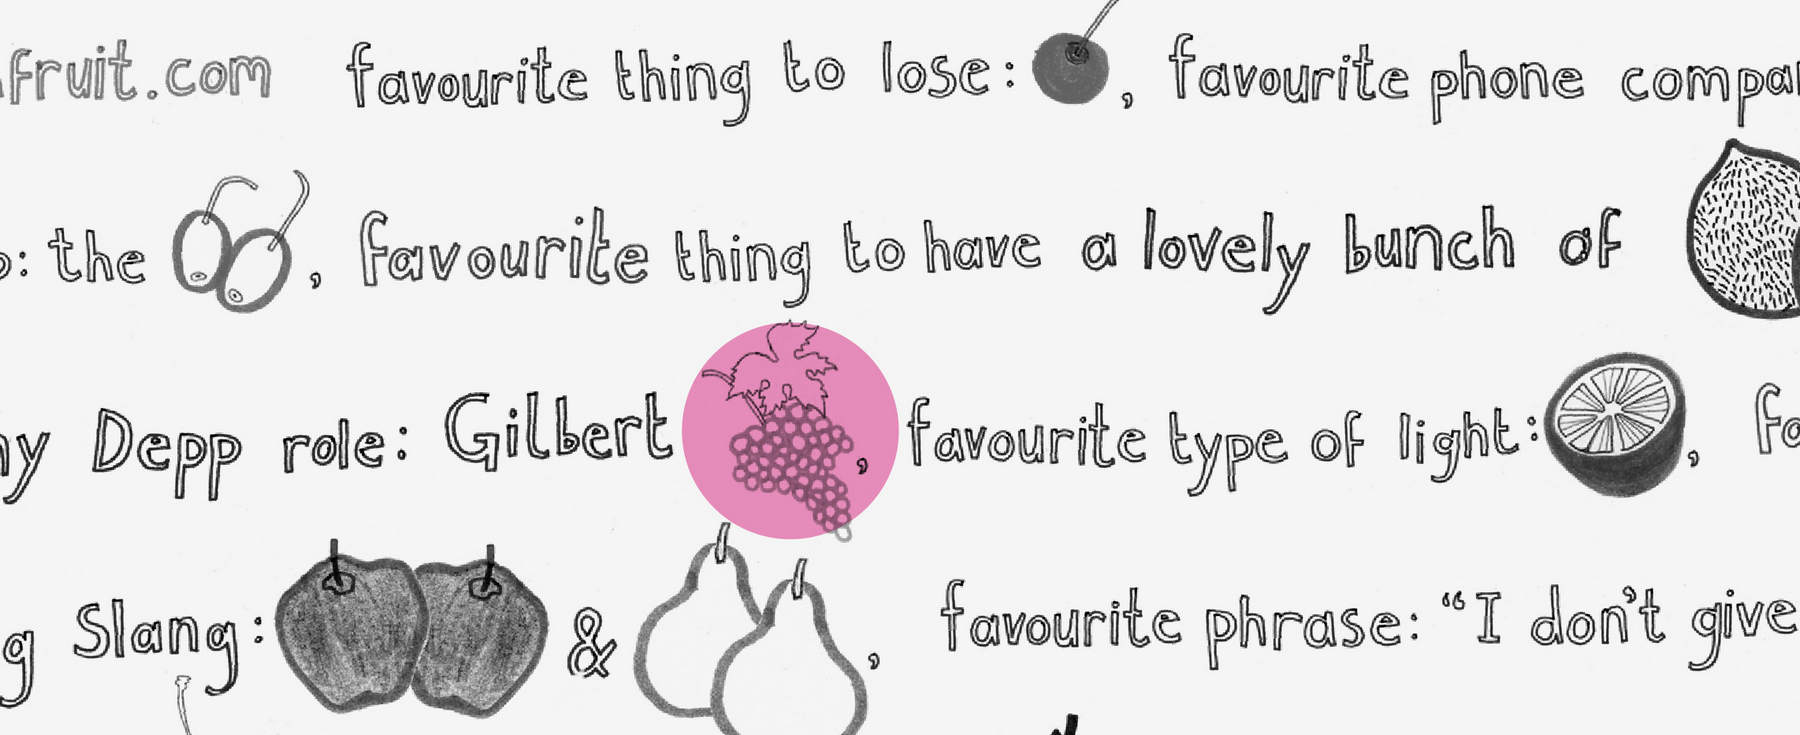 fruit.com favourite thing to lose: , favourite phone compa
: the , favourite thing to have a lovely bunch of
y Depp role: Gilbert , favourite type of light: , fa
g Slang: & , favourite phrase: “I don't give